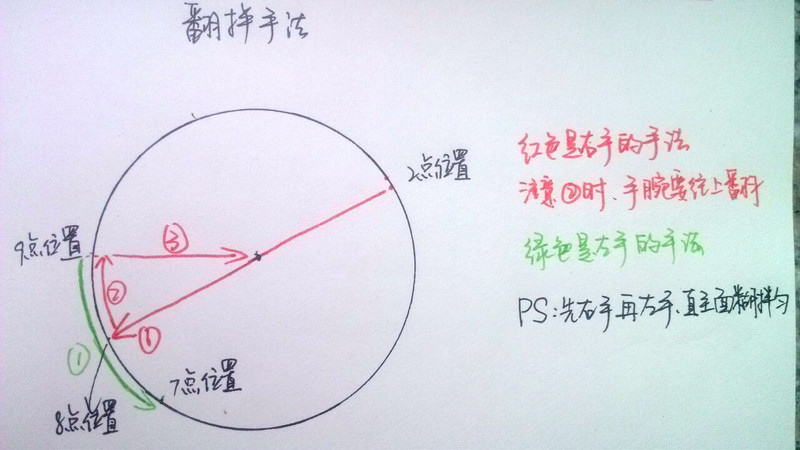 翻拌手法
2点位置
红色是右手的手法
注意②时、手腕要往上翻
9点位置
③
绿色是左手的手法
②
①
PS:先右手再左手、直至面糊拌匀
①
7点位置
8点位置